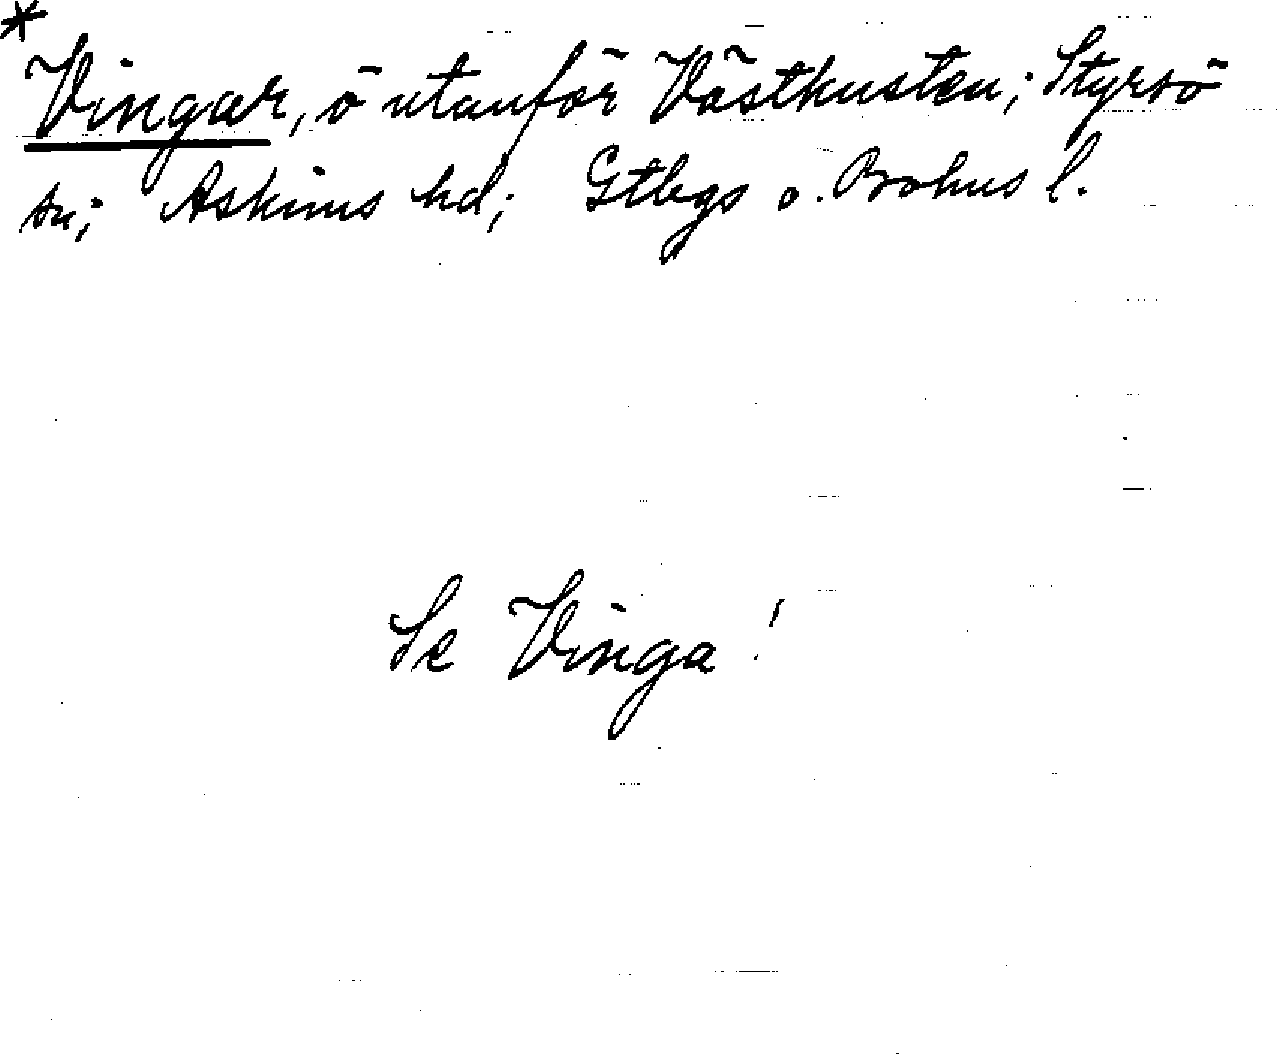 *
Vingar, ö utanför Västkusten; Styrsö
sn; Askims hd; Gtbgs o. Bohus l.
Se Vinga!